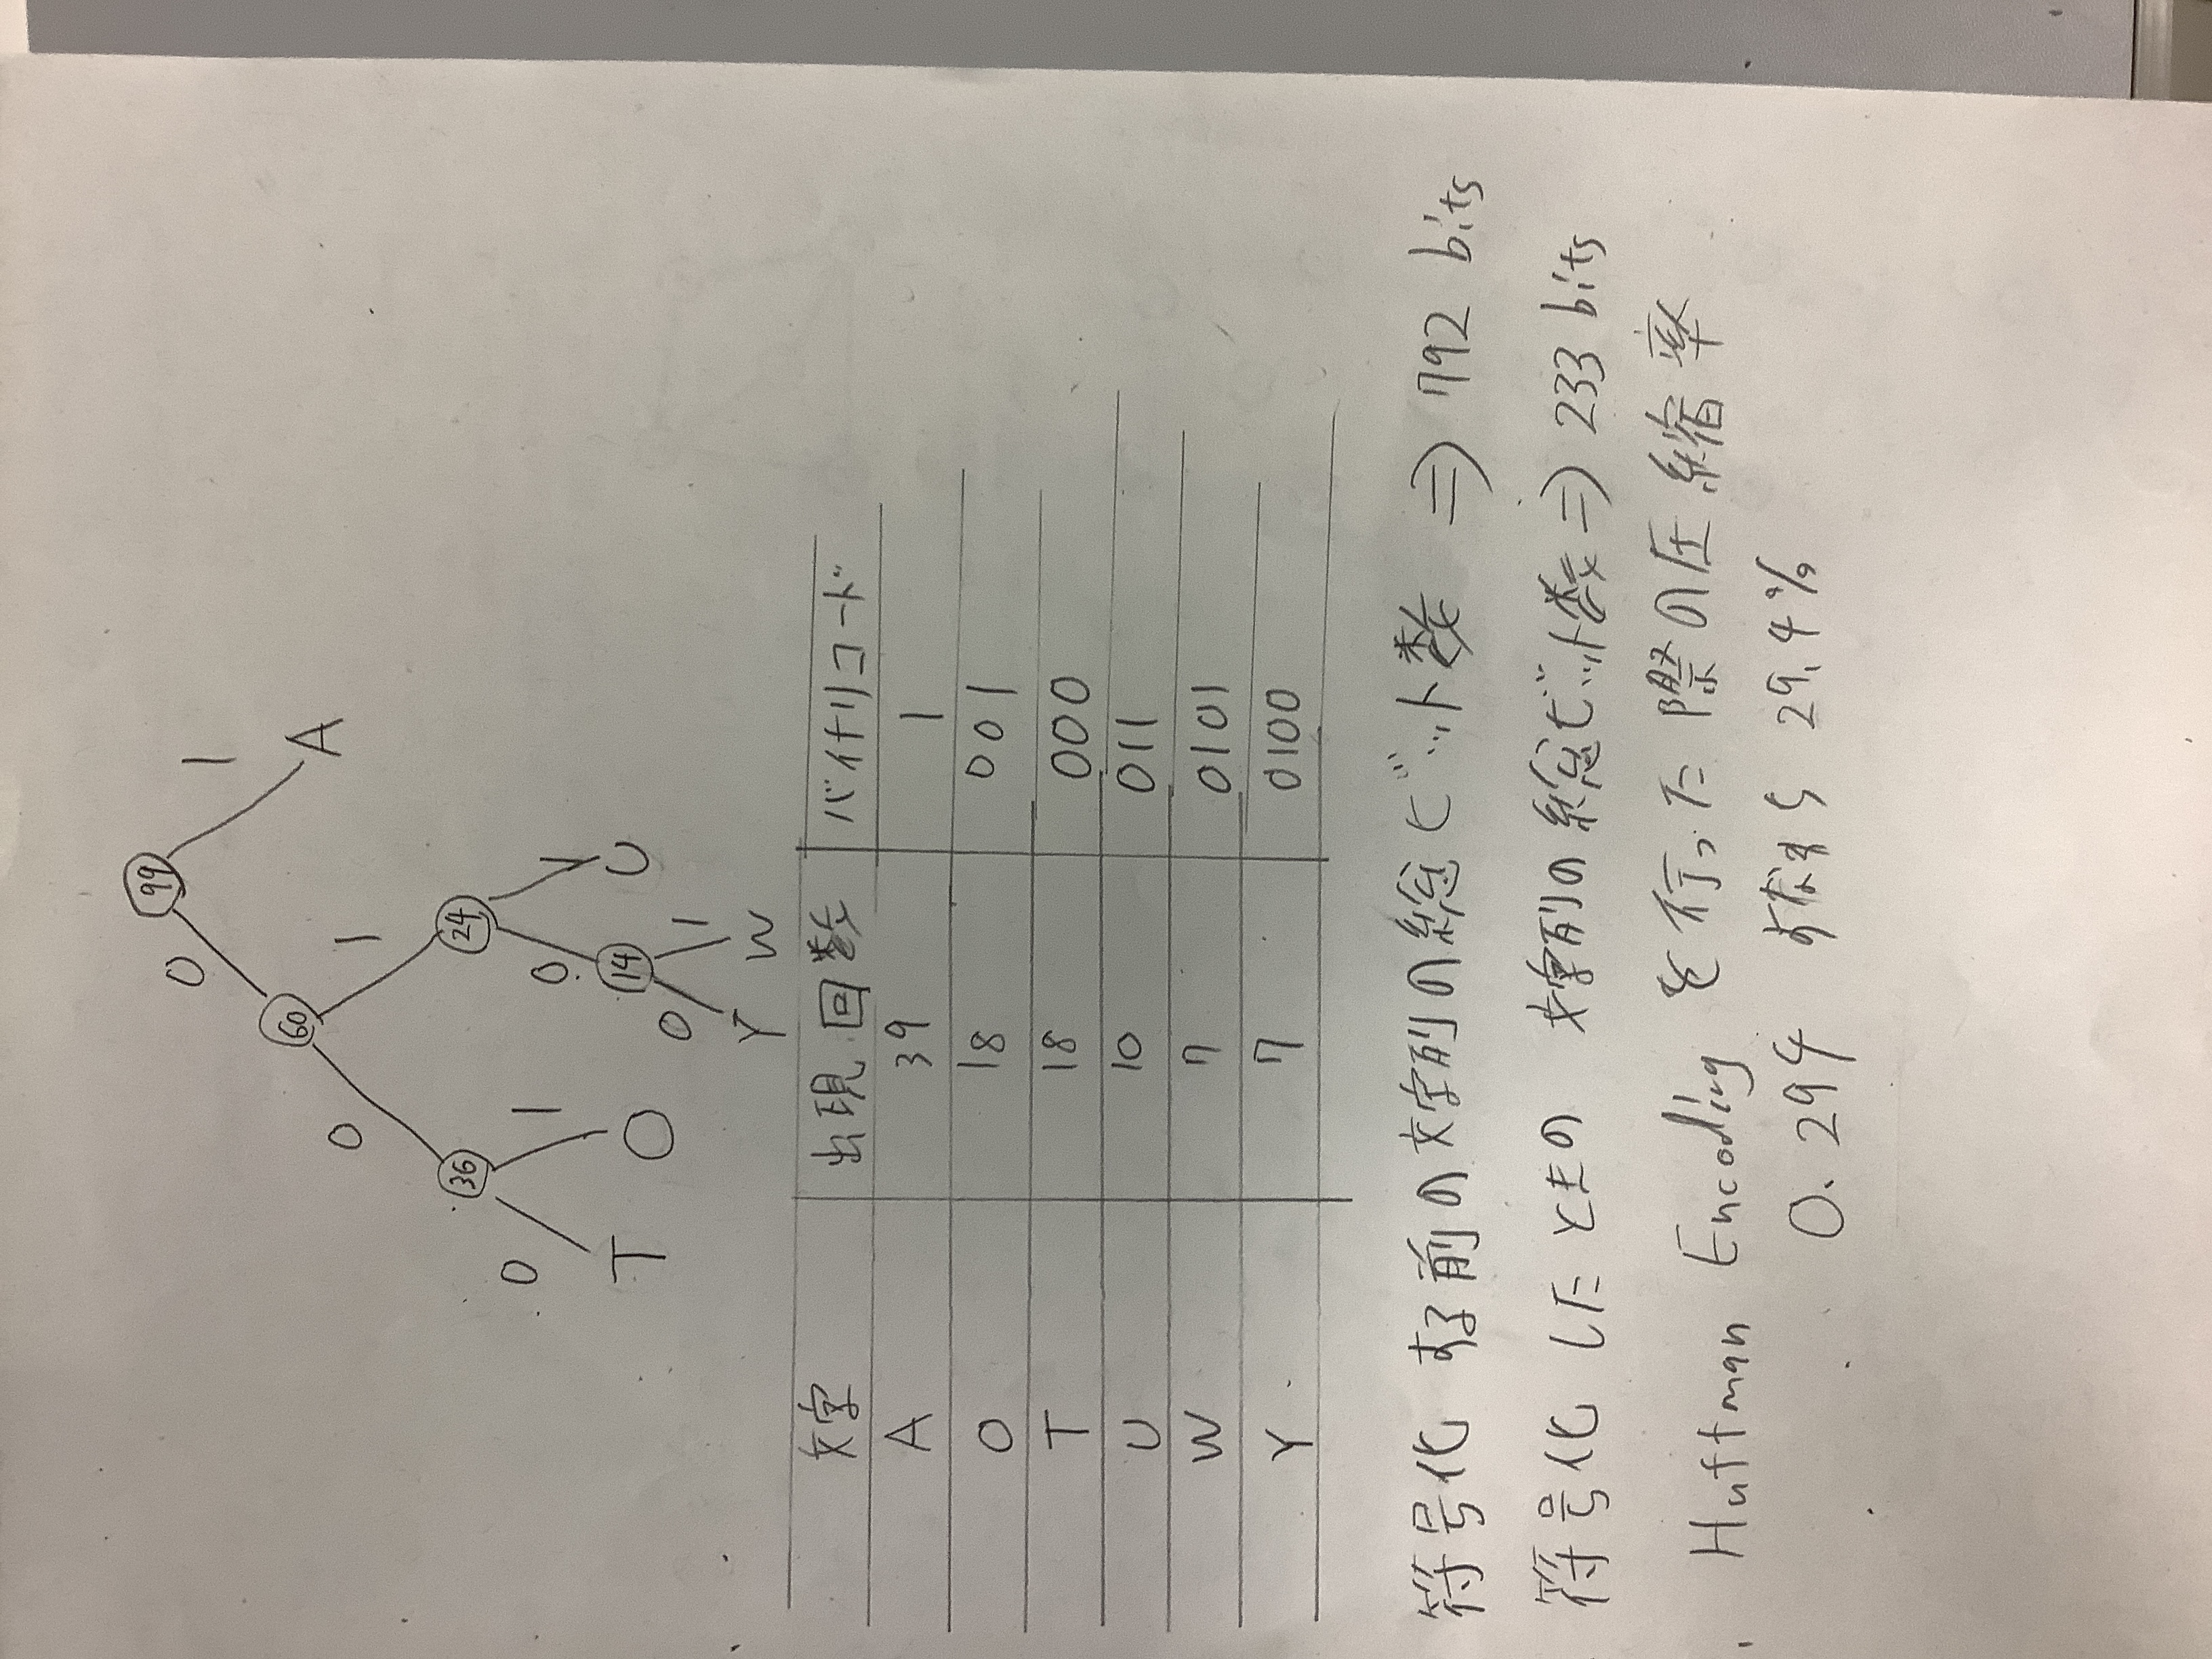 99
0 1
60
A
0 1
36 24
0 1 0 1
T O 14 U
0 1
Y W
文字 出現回数 バイナリコード
A 39 1
O 18 001
T 18 000
U 10 011
W 7 0101
Y 7 0100
符号化する前の文字列の総ビット数 ⇒ 792 bits
符号化したときの 文字列の総ビット数 ⇒ 233 bits
Huffman Encodingを行った際の圧縮率
0.294 すなわち 29.4%